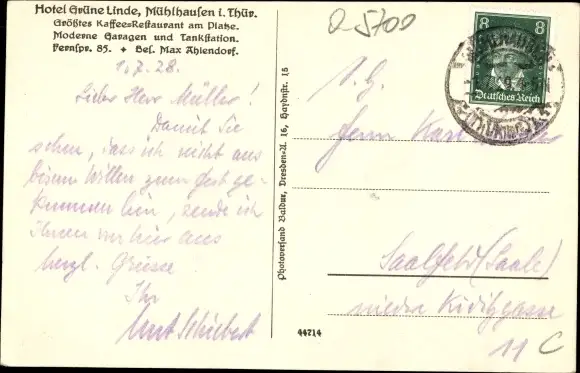 Hotel Grüne Linde, Mühlhausen i. Thür.
Größtes Kaffee=Restaurant am Platze.
Moderne Garagen und Tankstation.
Fernspr. 85. + Bes. Max Ahlendorf.
1.7.28.
Lieber Herr Müller!
Damit Sie
sehen, dass ich nicht aus
bösem Willen zum Fest ge-
kommen bin, sende ich
Ihnen von hier aus
herzl. Grüsse
Ihr
Kurt Schubert
Photoversand Baldur, Dresden=A. 16, Haydnstr. 15
44714
Q 5700
8 8
Deutsches Reich
S. H.
Herrn Kurt Müller
Saalfeld (Saale)
niedre
11
C